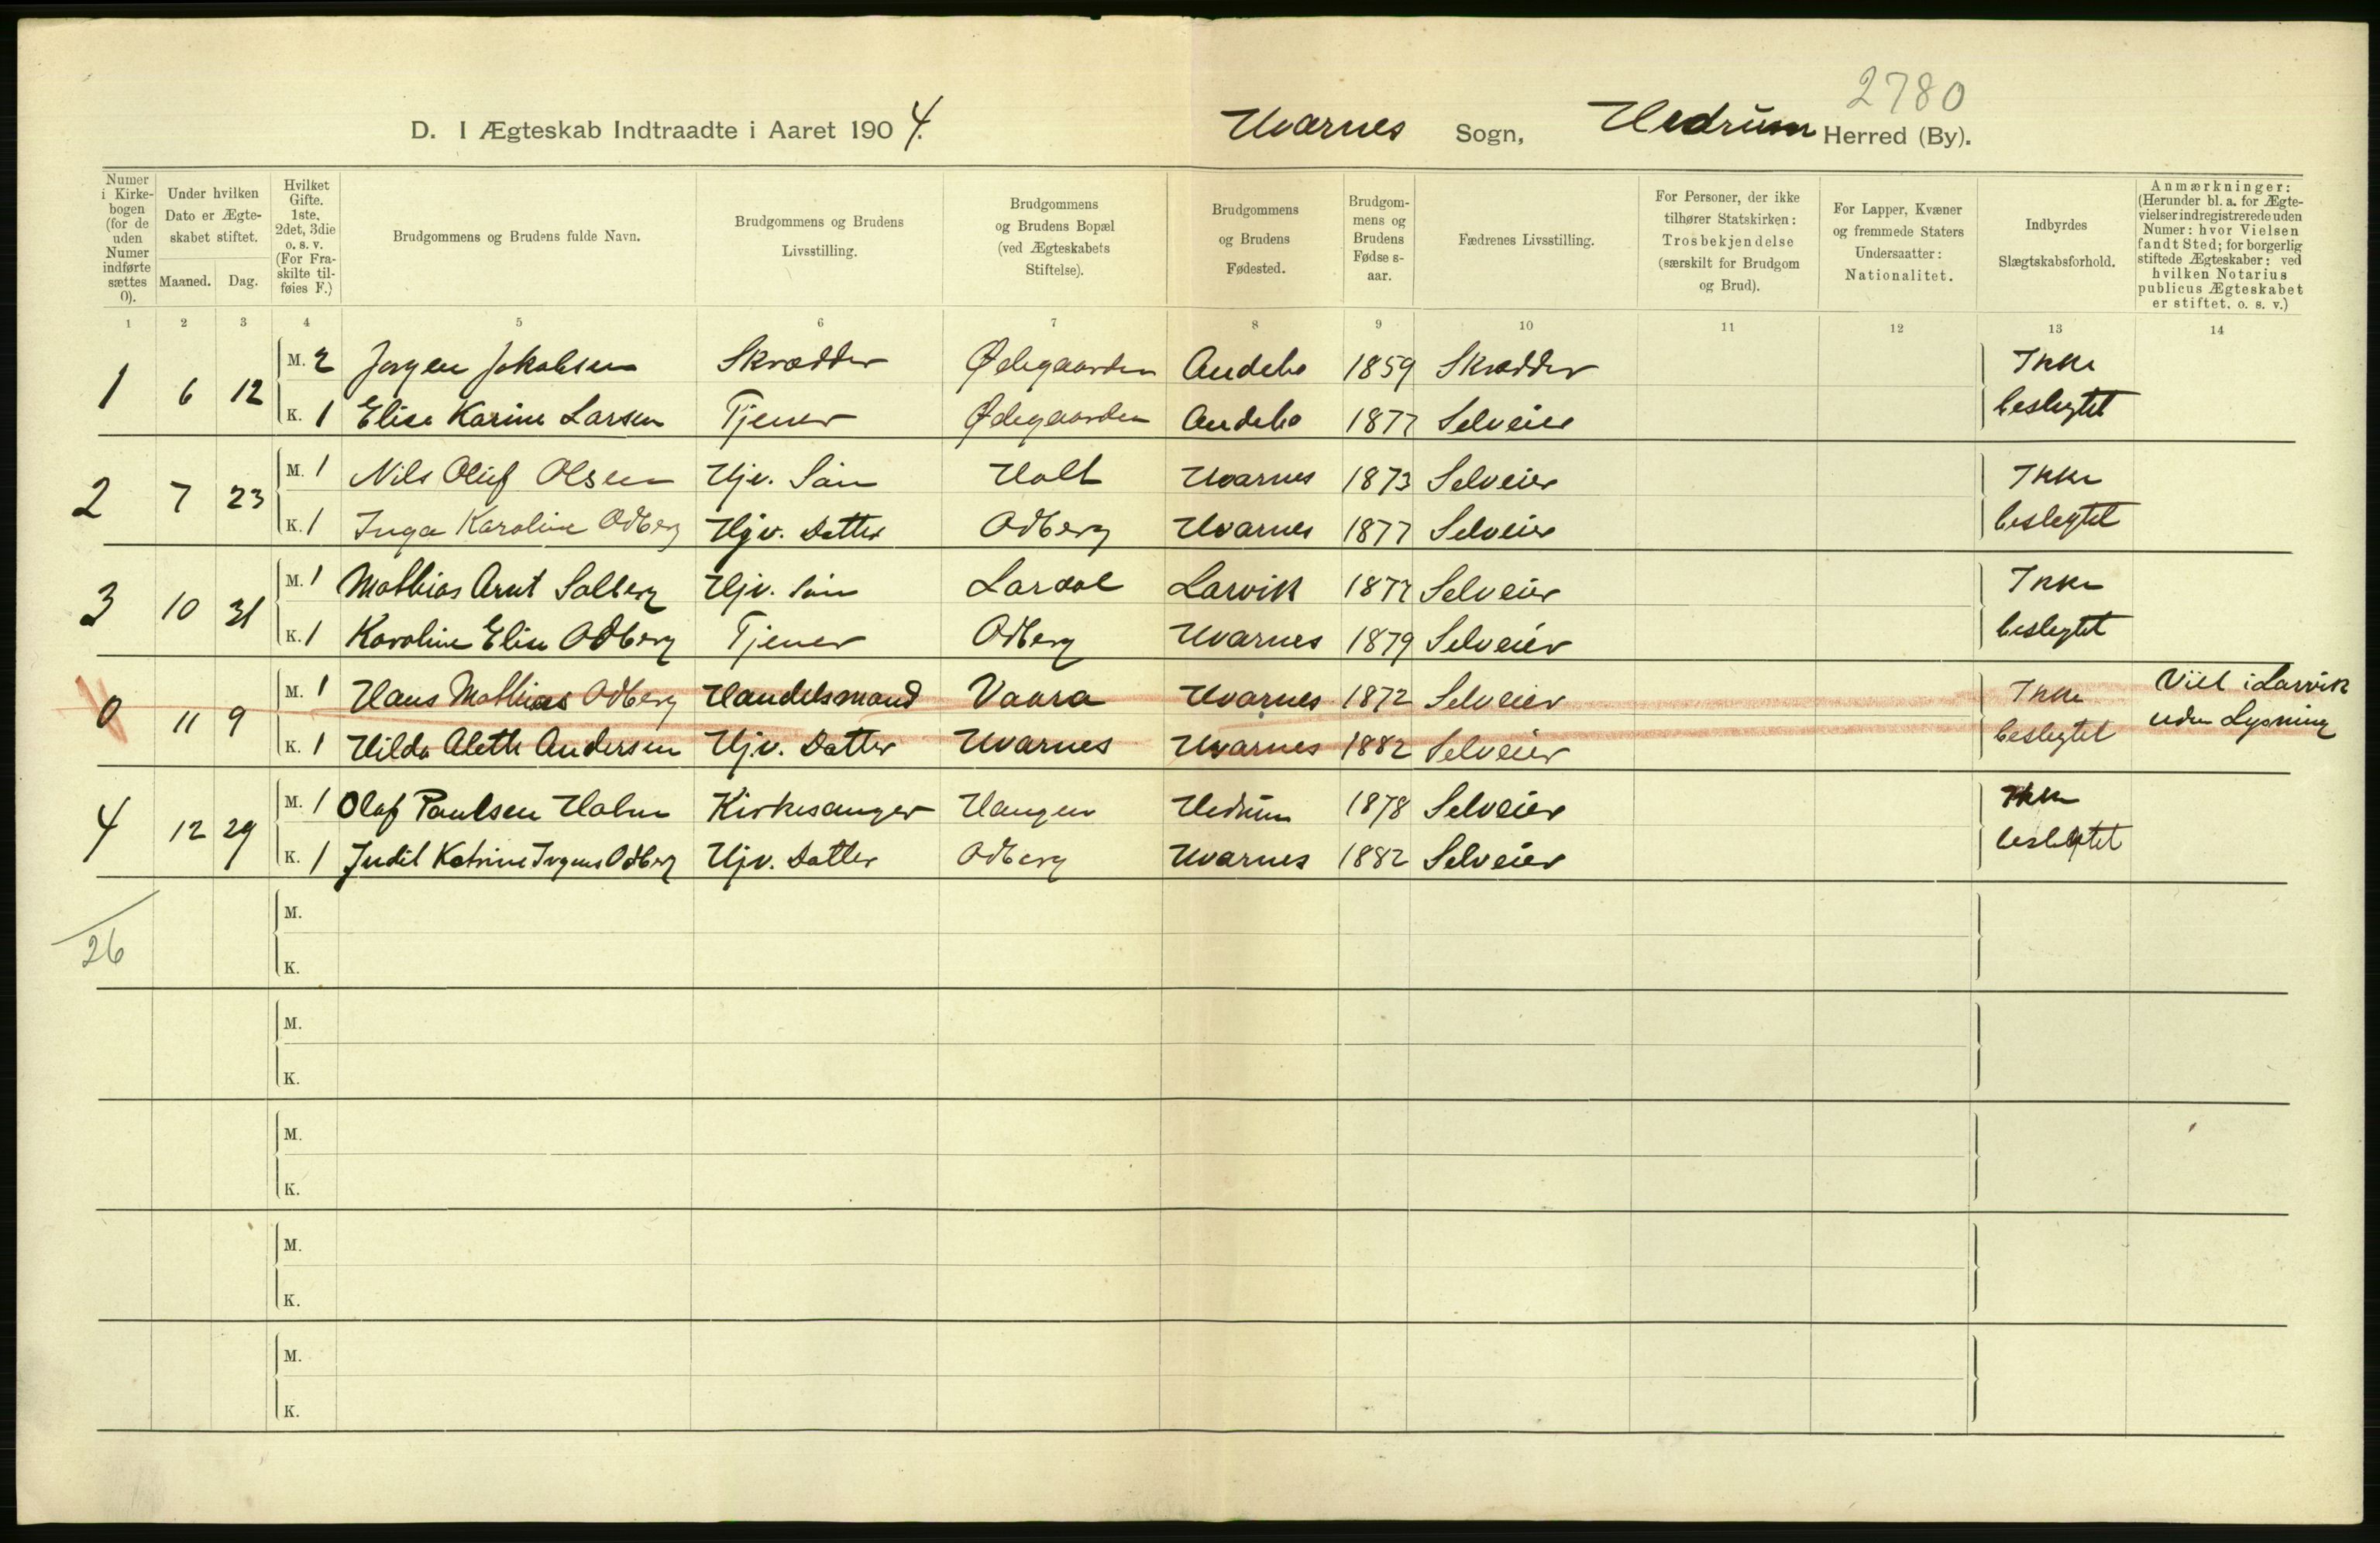 2780
D. I Ægteskab Indtraadte i Aaret 1904. Hvarnes Sogn, Hedrum Herred (By).
Numer i Kirkebogen (for de uden Numer indførte sættes 0).
Under hvilken Dato er Ægteskabet stiftet.
Maaned. Dag.
Hvilket Gifte. 1ste, 2det, 3die o. s. v. (For Fraskilte tilføies F.)
Brudgommens og Brudens fulde Navn.
Brudgommens og Brudens Livsstilling.
Brudgommens og Brudens Bopæl (ved Ægteskabets Stiftelse).
Brudgommens og Brudens Fødested.
Brudgommens og Brudens Fødse s-aar.
Fædrenes Livsstilling.
For Personer, der ikke tilhører Statskirken: Trosbekjendelse (særskilt for Brudgom og Brud).
For Lapper, Kvæner og fremmede Staters Undersaatter: Nationalitet.
Indbyrdes Slægtskabsforhold.
Anmærkninger: (Herunder bl. a. for Ægtevielser indregistrerede uden Numer: hvor Vielsen fandt Sted; for borgerlig stiftede Ægteskaber: ved hvilken Notarius publicus Ægteskabet er stiftet. o. s. v.)
1 2 3 4 5 6 7 8 9 10 11 12 13 14
1 6 12 M. 2 Jørgen Jakobsen Skrædder Ødegaarden Andebo 1859 Skrædder Ikke
K. 1 Elise Karine Larsen Tjener Ødegaarden Andebo 1877 Selveier beslegtet
2 7 23 M. 1 Nils Oluf Olsen Hjv. Søn Holt Hvarnes 1873 Selveier Ikke
K. 1 Inga Karoline Odberg Hjv. Datter Odberg Hvarnes 1877 Selveier beslegtet
3 10 31 M. 1 Mathias Arnt Solberg Hjv. Søn Lardal Larvik 1877 Selveier Ikke
K. 1 Karoline Elise Odberg Tjener Odberg Hvarnes 1879 Selveier beslegtet
0 11 9 M. 1 Hans Mathias Odberg Handelsmand Vaara Hvarnes 1872 Selveier Ikke Viet i Larvik
K. 1 Hilda Aleth Andersen Hjv. Datter Hvarnes Hvarnes 1882 Selveier beslegtet uden Lysning
4 12 29 M. 1 Olaf Paulsen Holm Kirkesanger Haugen Hedrum 1878 Selveier Ikke
K. 1 Judit Katrine Odberg Hjv. Datter Odberg Hvarnes 1882 Selveier beslegtet
M.
26
K.
M.
K.
M.
K.
M.
K.
M.
K.